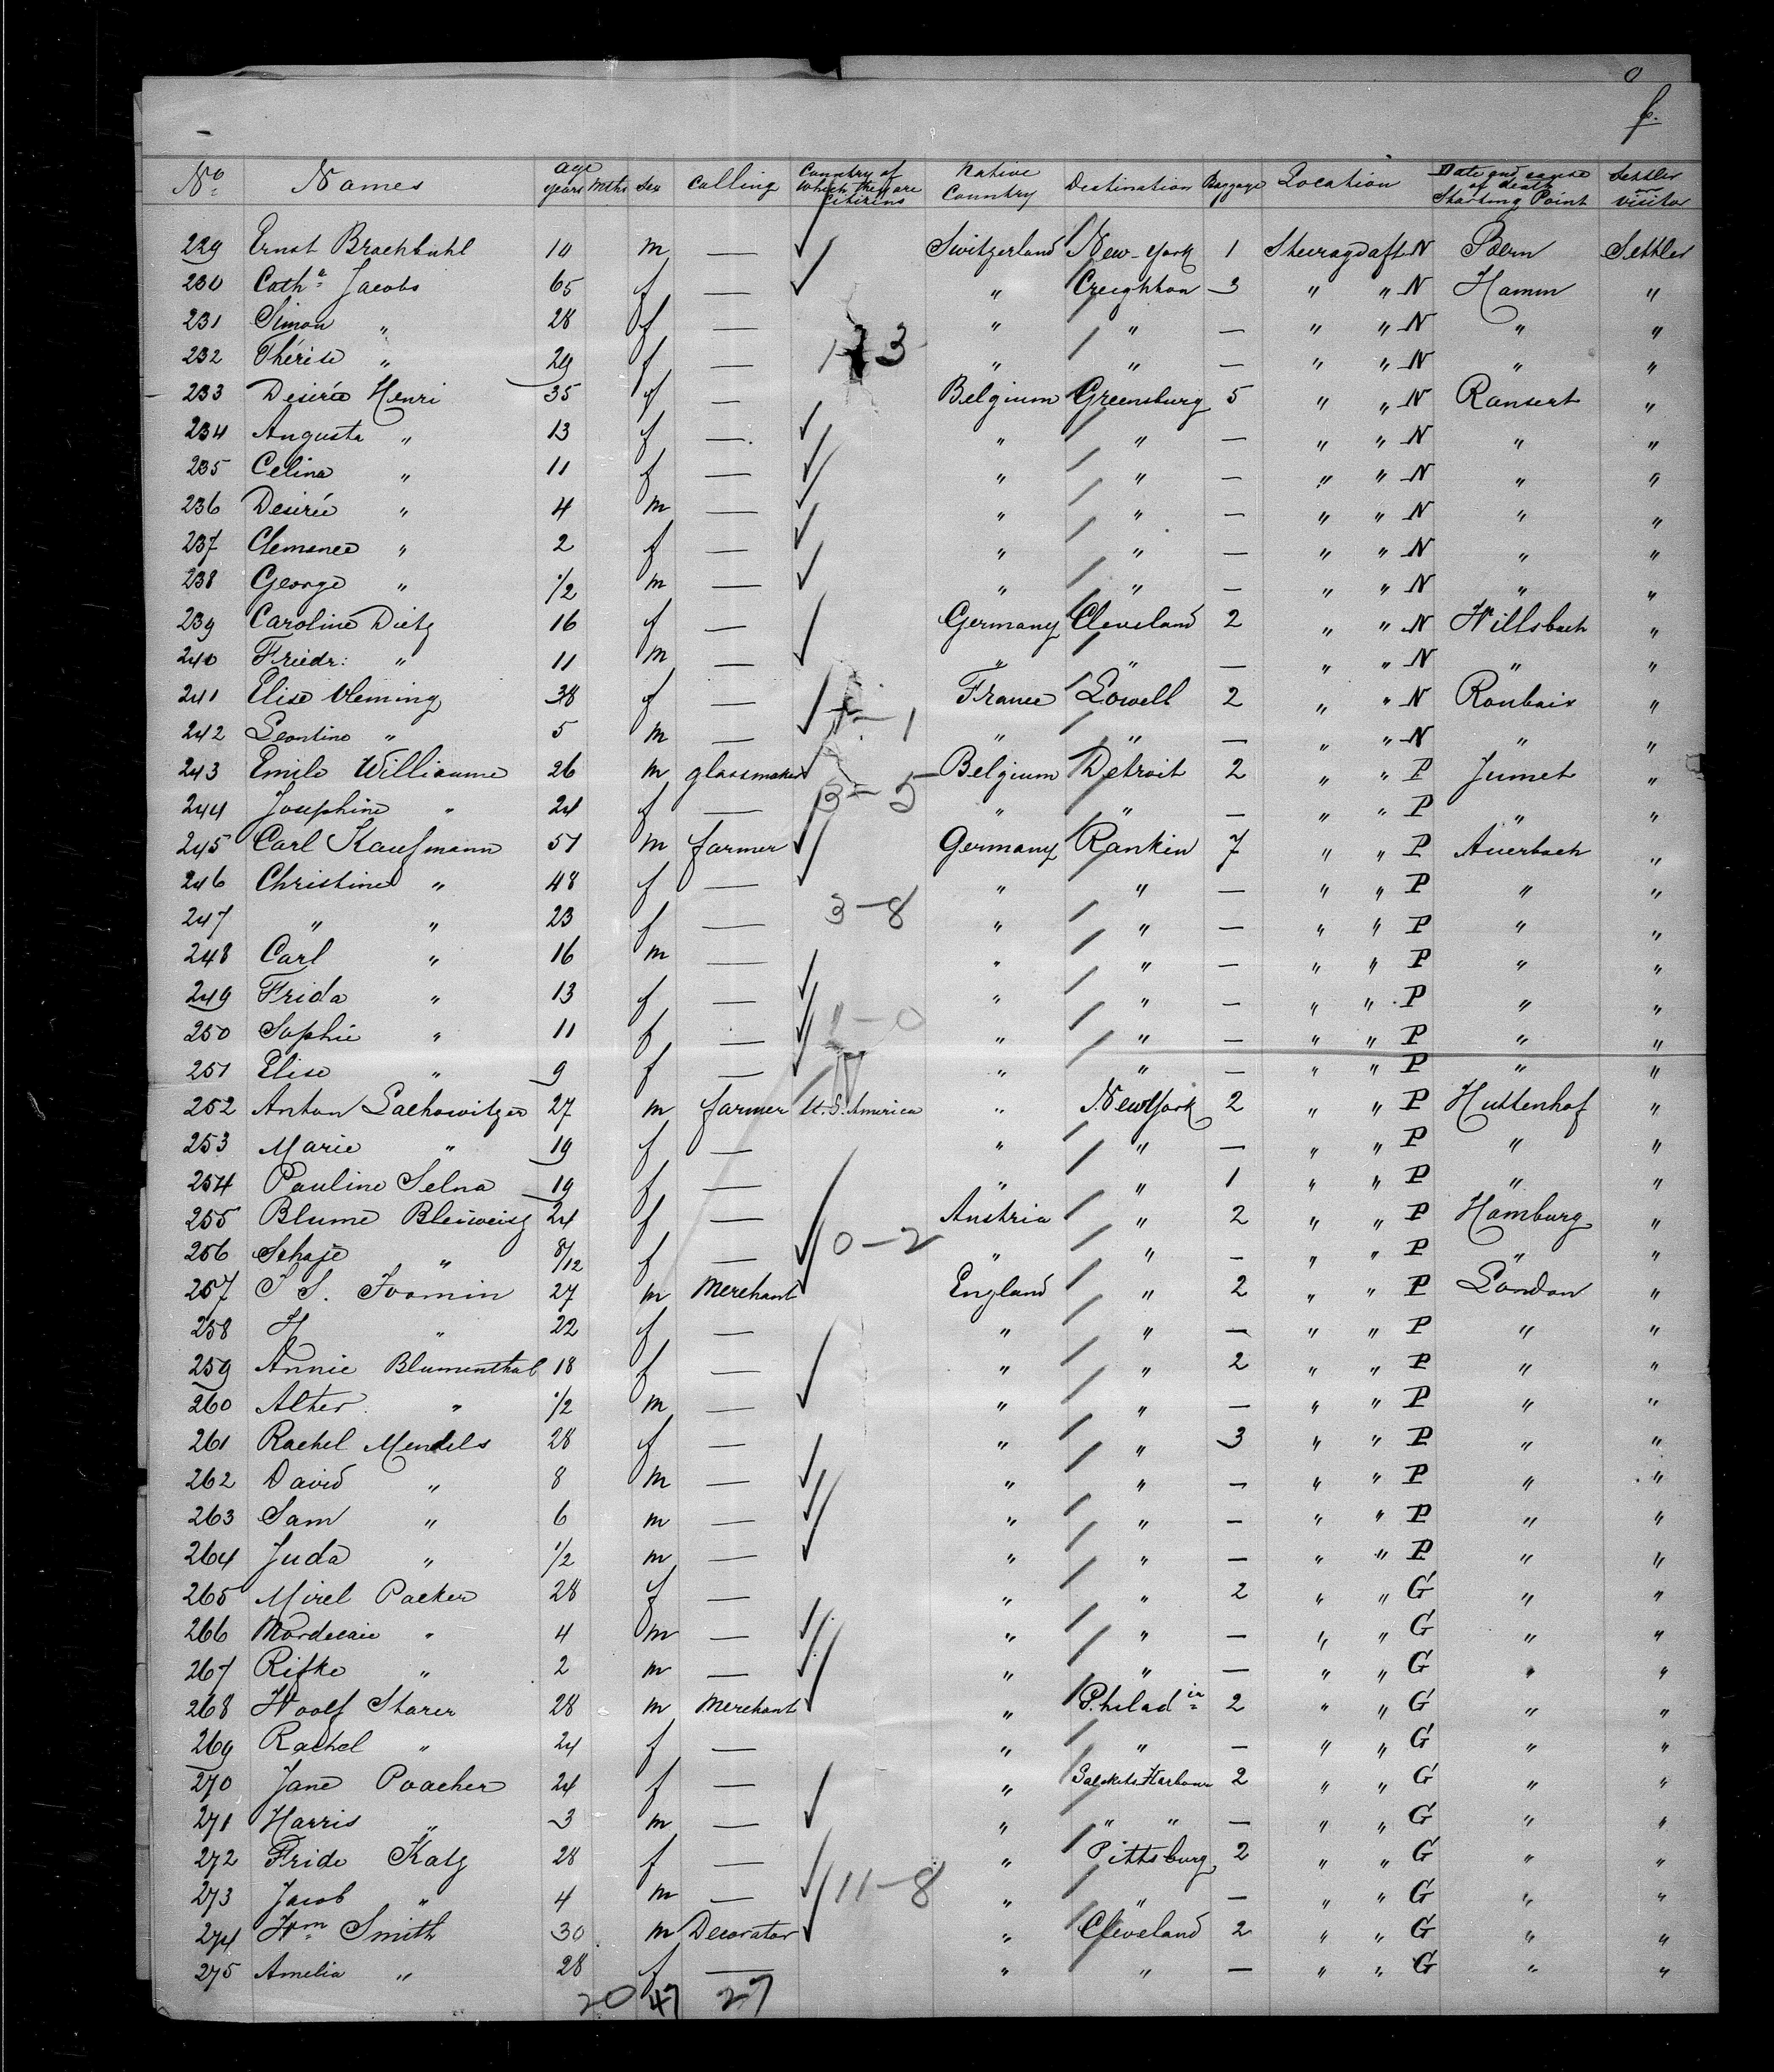 0
f.
No. Names age years mths sex Calling Country of which they are citizens Native Country Destination Baggage Location Date and cause of death Starting Point Settler or visitor
229 Ernst Brachbühl 10 m — Switzerland New-York 1 N Bern Settler
230 Cath.a Jacobs 65 f — " Creighton 3 " " N Hamm "
231 Simon " 28 f — " " — " " N " "
232 Thérise " 29 f — " " — " " N " "
1 3
233 Desirée Henri 35 f — Belgium Greensburg 5 " " N Ransert "
234 Augusta " 13 f — " " — " " N " "
235 Celina " 11 f — " " — " " N " "
236 Desirée " 4 m — " " — " " N " "
237 Clemence " 2 f — " " — " " N " "
238 George " 1/2 m — " " — " " N " "
239 Caroline Dietz 16 f — Germany Cleveland 2 " " N Willsbach "
240 Friedr: " 11 m — " " — " " N " "
241 Elise Vleming 38 f — France Lowell 2 " " N Roubaix "
— 1
242 Leontine " 5 m — " " — " " N " "
243 Emile Williaume 26 m glassmaker Belgium Detroit 2 " " P Jumet "
3 — 5
244 Josephine " 24 f — " " — " " P " "
245 Carl Kaufmann 51 m farmer Germany Rankin 7 " " P Auerbach "
246 Christine " 48 f — " " — " " P " "
3 — 8
247 " " 23 f — " " — " " P " "
248 Carl " 16 m — " " — " " P " "
249 Frida " 13 f — " " — " " P " "
250 Sophie " 11 f — " " — " " P " "
— 0
251 Elise " 9 f — " " — " " P " "
252 Anton Lachowitzer 27 m farmer U.S. America " New York 2 " " P Huttenhof "
253 Marie " 19 f — " " — " " P " "
254 Pauline Selna 19 f — " " 1 " " P " "
255 Blume Bleiweisz 24 f — Austria " 2 " " P Hamburg "
0 — 2
256 Schaje " 8/12 f — " " — " " P " "
257 27 m Merchant England " 2 " " P London "
258 H " 22 f — " " — " " P " "
259 Annie Blumenthal 18 f — " " 2 " " P " "
260 Alter " 1/2 m — " " — " " P " "
261 Rachel Mendels 28 f — " " 3 " " P " "
262 David " 8 m — " " — " " P " "
263 Sam " 6 m — " " — " " P " "
264 Juda " 1/2 m — " " — " " P " "
265 Mirel Packer 28 f — " " 2 " " G " "
266 Mordecaie " 4 m — " " — " " G " "
267 Rifke " 2 m — " " — " " G " "
268 Woolf Sharer 28 m Merchant " Philad.ia 2 " " G " "
269 Rachel " 24 f — " " — " " G " "
270 Jane Poacher 24 f — " Sackets Harbour 2 " " G " "
271 Harris " 3 m — " " " — " " G " "
272 Fride Katz 28 f — " Pittsburg 2 " " G " "
11 — 8
273 Jacob " 4 m — " " — " " G " "
274 Wm Smith 30 m Decorator " Cleveland 2 " " G " "
275 Amelia " 28 f — " " — " " G " "
20 47 27